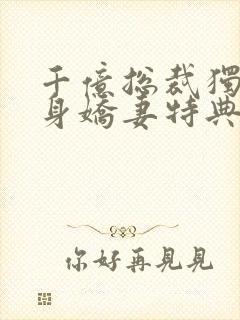 千億總裁獨
身嬌妻特典
你好再見見